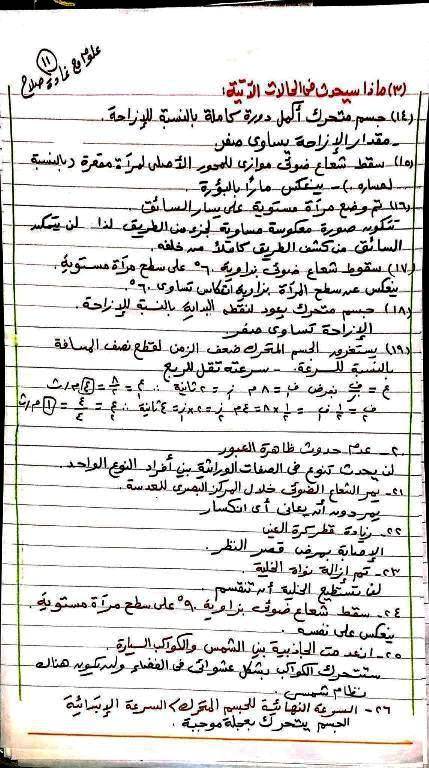 ١١
علوم مع غادة صلاح
(٣) ماذا سيحدث فى الحالات الآتية:
(١٤) جسم متحرك أكمل دورة كاملة بالنسبة للإزاحة.
- مقدار الإزاحة يساوى صفر
(١٥) سقط شعاع ضوئى موازى للمحور الأصلى لمرآة مقعرة (بالنسبة
لمساره.) - ينعكس مارًا بالبؤرة
(١٦) تم وضع مرآة مستوية على يسار السائق.
تتكون صورة معكوسة مساوية لجزء من الطريق لذا لن يتمكن
السائق من كشف الطريق كاملًا من خلفه.
(١٧) سقوط شعاع ضوئى بزاوية ٦٠° على سطح مرآة مستوية.
ينعكس عن سطح المرآة بزاوية انعكاس تساوى ٦٠°.
(١٨) جسم متحرك يعود لنقطة البداية بالنسبة للإزاحة.
الإزاحة تساوى صفر.
(١٩) يستغرق الجسم المتحرك ضعف الزمن لقطع نصف المسافة
بالنسبة للسرعة. - سرعته تقل للربع
ع = ف/ز بفرض ف١ = ٨ م ز١ = ٢ ثانية ∴ ع١ = ٨/٢ = ٤ م/ث
ف٢ = ١/٢ ف١ = ١/٢ × ٨ = ٤ م ز٢ = ٢ × ز١ = ٤ ثانية ∴ ع٢ = ٤/٤ = ١ م/ث
٢٠- عدم حدوث ظاهرة العبور
لن يحدث تنوع فى الصفات الوراثية بين أفراد النوع الواحد.
٢١- يمر الشعاع الضوئى خلال المركز البصرى للعدسة.
يمر دون أن يعانى أى انكسار
٢٢- زيادة قطر كرة العين
الإصابة بمرض قصر النظر.
٢٣- تم إزالة نواة الخلية
لن تستطيع الخلية أن تنقسم
٢٤- سقط شعاع ضوئى بزاوية ٩٠° على سطح مرآة مستوية.
ينعكس على نفسه.
٢٥- انعدمت الجاذبية بين الشمس والكواكب السيارة.
ستتحرك الكواكب بشكل عشوائى فى الفضاء ولن يكون هناك
نظام شمسى.
٢٦- السرعة النهائية للجسم المتحرك > السرعة الإبتدائية
الجسم يتحرك بعجلة موجبة.